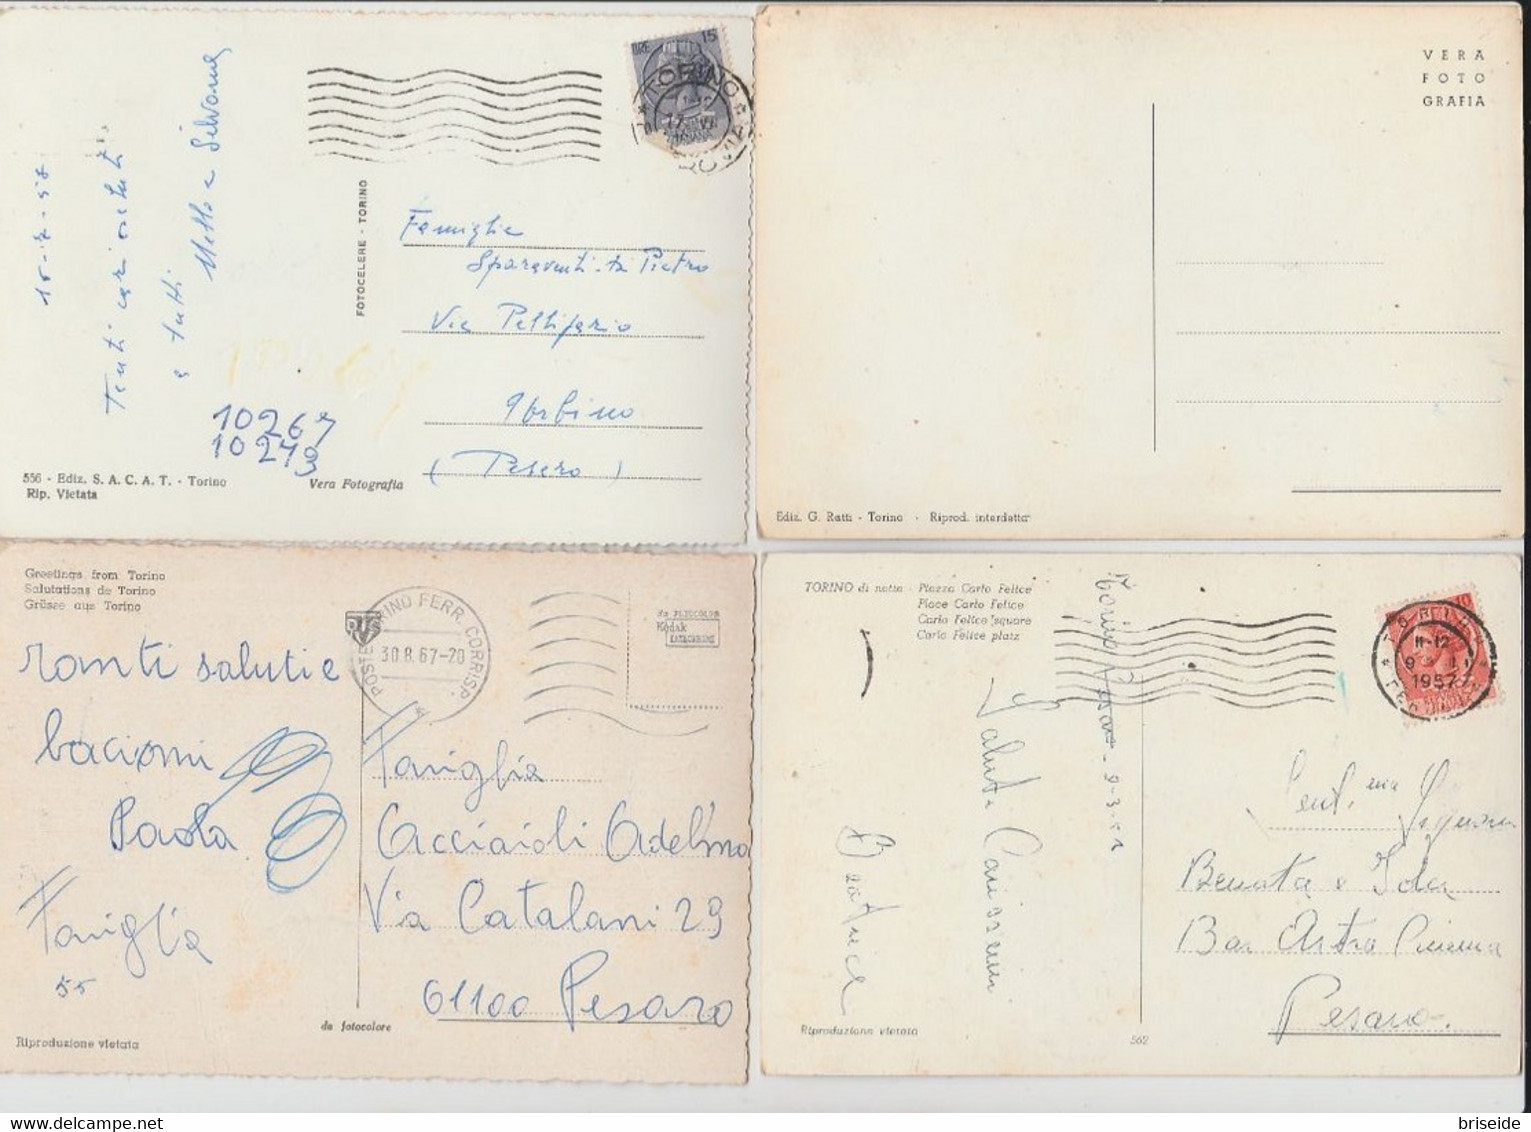 15-7-57
Tanti cari saluti
a tutti
Silvana
LIRE 15
TORINO
FOTOCELERE - TORINO
Famiglia
Sparaventi fu Pietro
Via Pellipario
Urbino
(Pesaro)
10267
10273
556 - Ediz. S. A. C. A. T. - Torino
Rip. Vietata
Vera Fotografia
VERA
FOTO
GRAFIA
Ediz. G. Ratti - Torino - Riprod. interdetta
Greetings from Torino
Salutations de Torino
Grüsse aus Torino
POSTE TORINO FERR. CORRISP.
30.8.67-20
Kodak
EKTACHROME
Tanti saluti e
bacioni
Paola
Famiglia
55
Famiglia
Acciaioli Adelmo
Via Catalani 29
61100 Pesaro
da fotocolore
Riproduzione vietata
TORINO di notte - Piazza Carlo Felice
Place Carlo Felice
Carlo Felice square
Carlo Felice platz
11-12
1957
Saluti Carissimi
Beatrice
Gent.me Signore
Renata e Ida
Bar Astra Cinema
Pesaro.
Riproduzione vietata
562
briseide